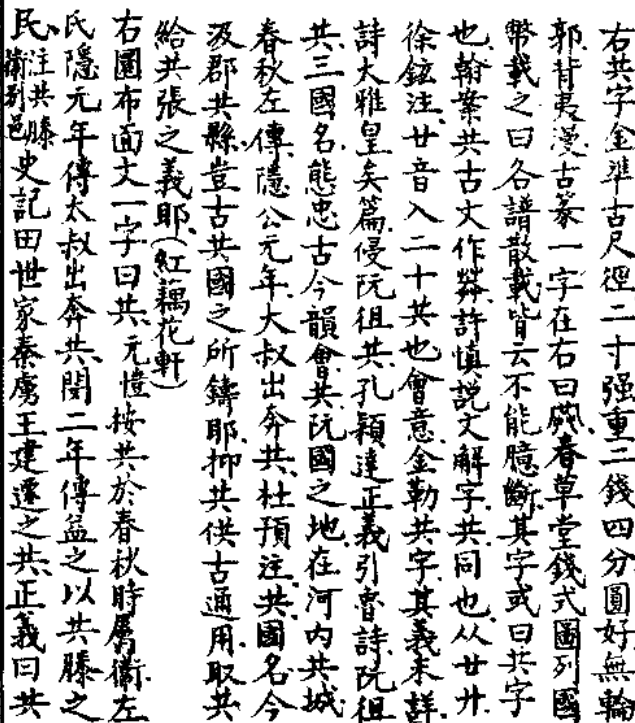 右共字金準古尺徑二寸强重二錢四分圓好無輪
郭背夷漫古篆一字在右曰癸春草堂錢式圖列國
幣載之曰各譜散載皆云不能臆斷其字或曰共字
也翰案共古文作𦱷許慎説文解字共同也从廿廾
徐鉉注廿音入二十共也會意金勒共字其義未詳
詩大雅皇矣篇侵阮徂共孔穎達正義引魯詩阮徂
共三國名熊忠古今韻會共阮國之地在河内共城
春秋左傳隱公元年大叔出奔共杜預注共國名今
汲郡共縣豈古共國之所鑄耶抑共供古通用取共
給共張之義耶(紅藕花軒)
右圜布面文一字曰共元愷按共於春秋時屬衛左
氏隱元年傳太叔出奔共閔二年傳益之以共滕之
民注共滕衛别邑史記田世家秦虜王建遷之共正義曰共